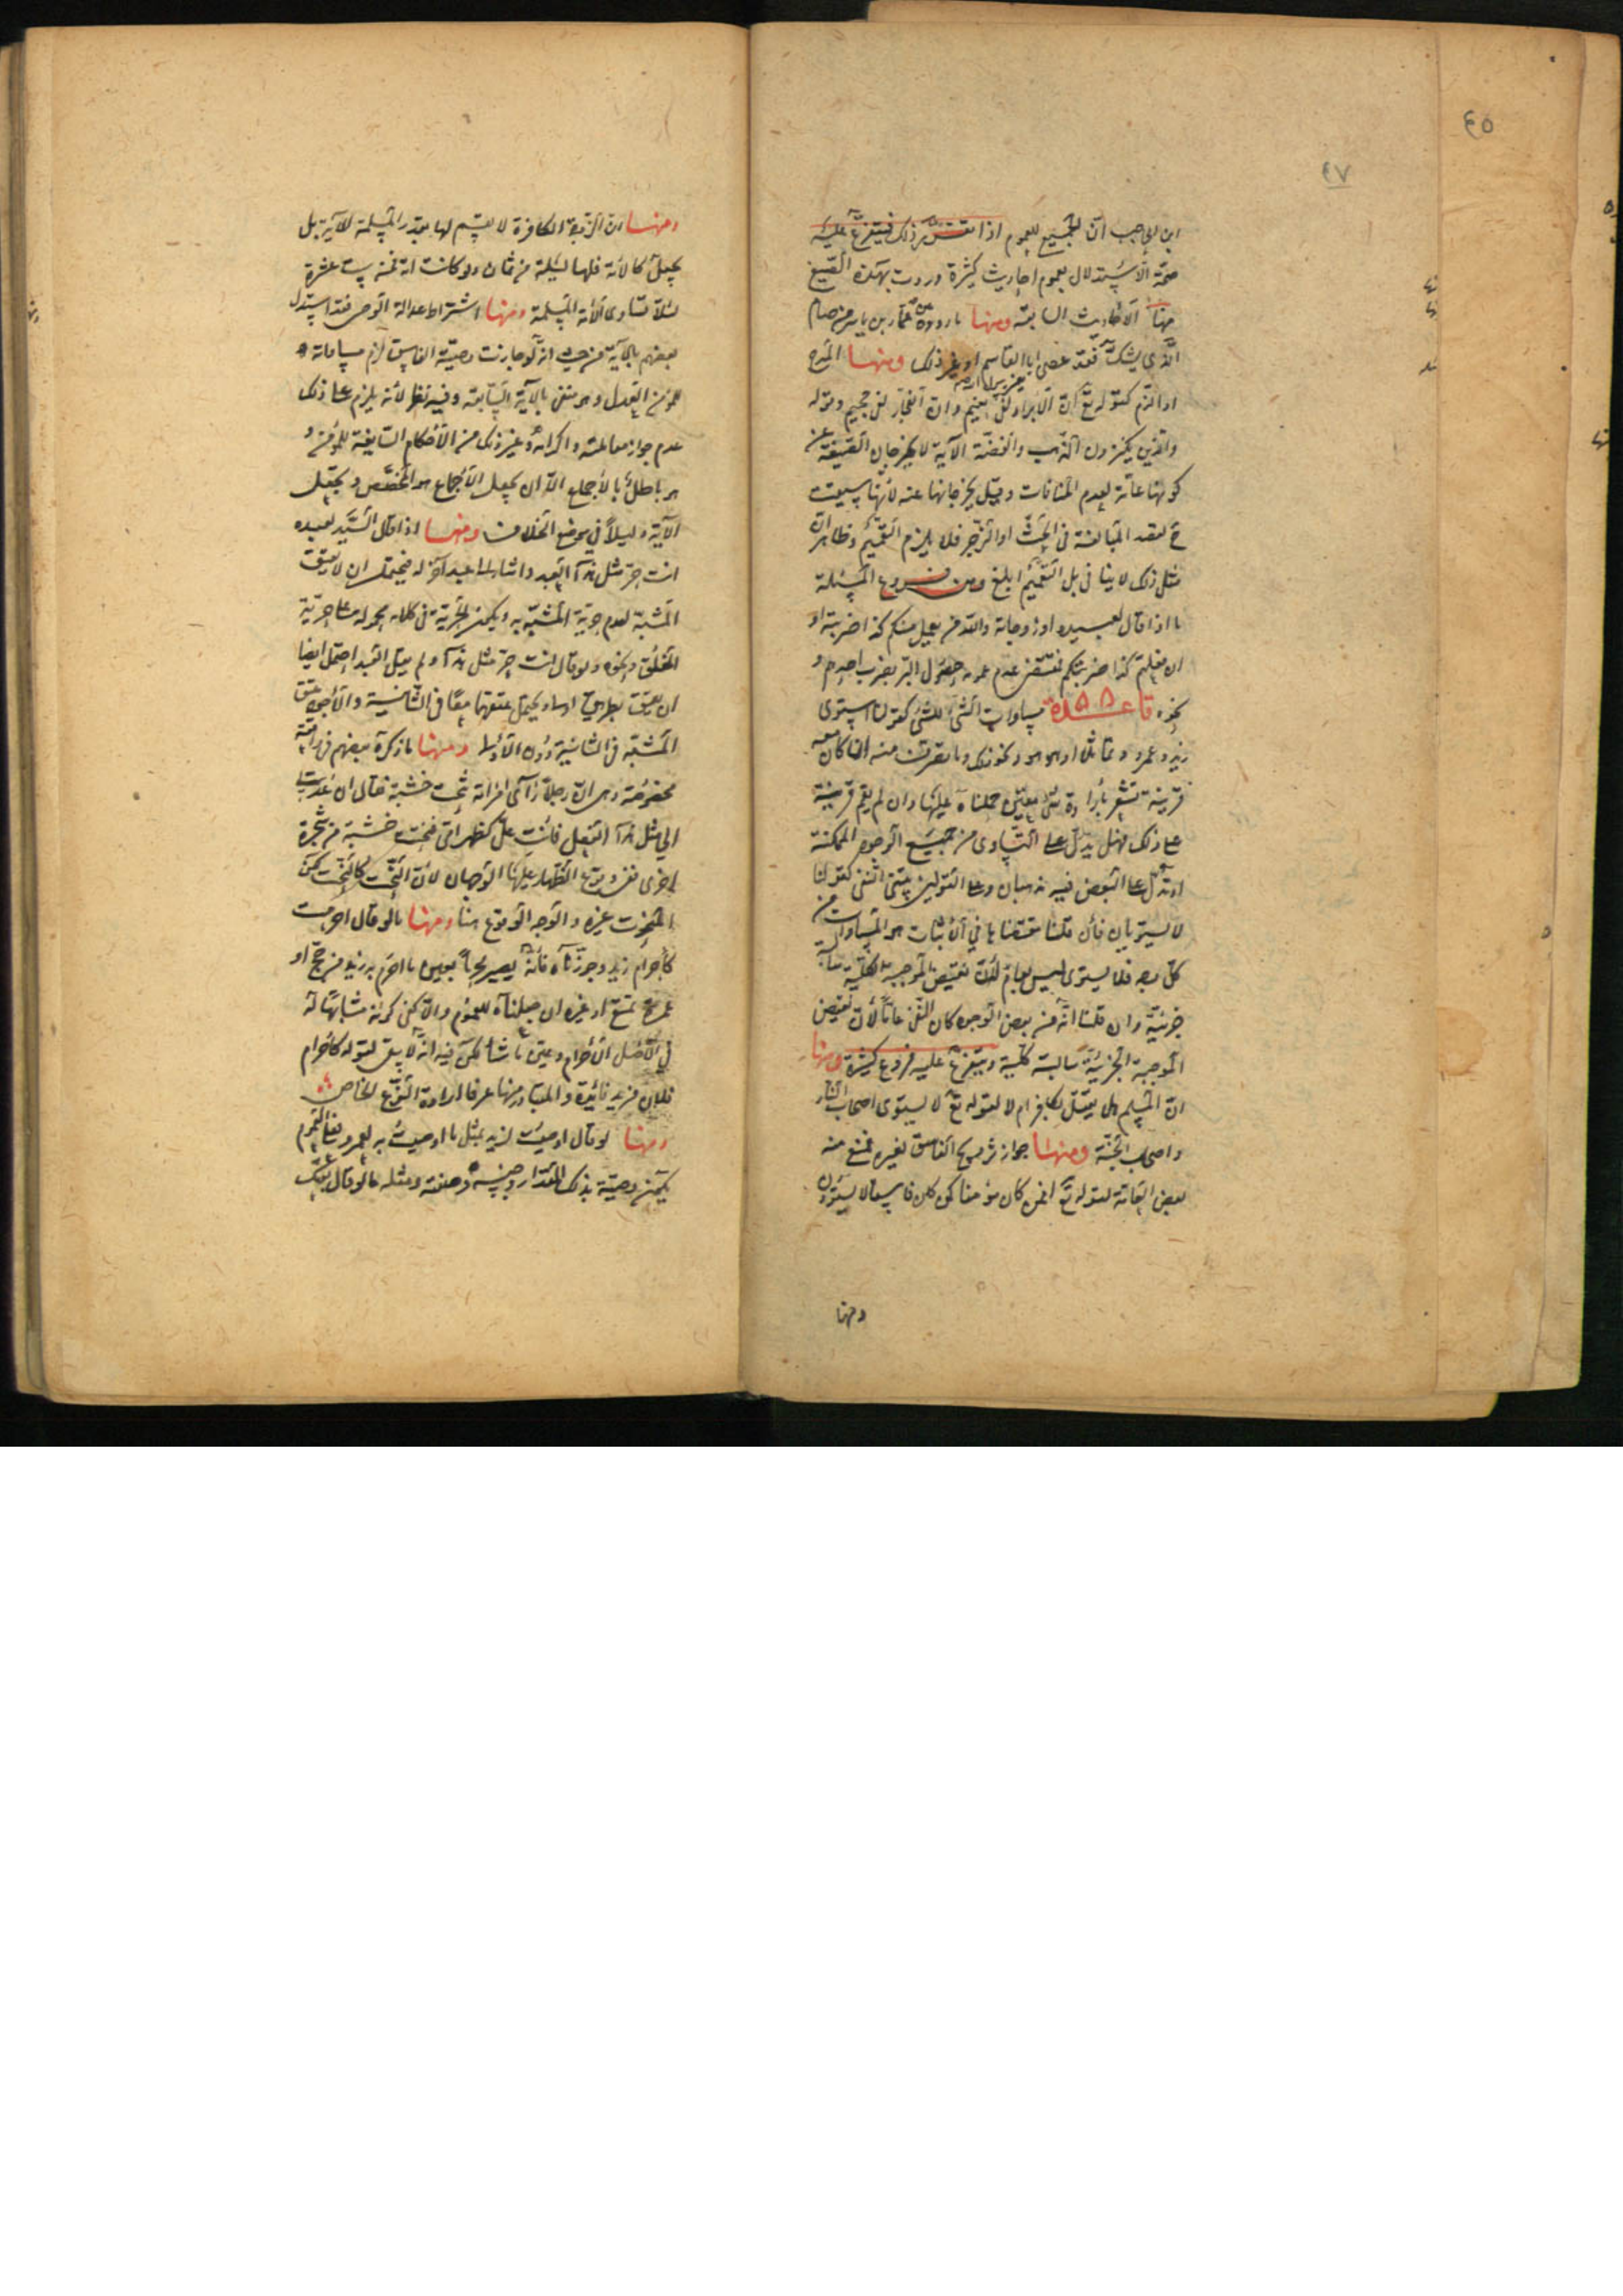 ٤٥
٤٧
ابن الحاجب ان الجميع للعموم اذا تقرر ذلك فيتفرع عليه
صحة الاستدلال بعموم احاديث كثيرة وردت بهذه الصيغ
منها الاحاديث السابقة ومنها ما روى عن عمار بن ياسر من صام
الذى يشك فقد عصى ابا القاسم او غير ذلك ومنها المدح
او الذم كقوله تع ان الابرار لفى نعيم وان الفجار لفى جحيم وقوله
والذين يكنزون الذهب والفضة الآية لا يخرجان الصيغة عن
كونها عامة لعدم المنافات وقيل يخرجانها عنه لانها سيقت
ح لقصد المبالغة فى الحث او الزجر فلا يلزم التعميم وظاهر ان
مثل ذلك لا ينافى بل التعميم ابلغ ومن فروع المسئلة
ما اذا قال لعبيده او زوجاته والله من يعمل منكم كذا ضربته او
ان فعلتم كذا ضربتكم فمقتضى عدم عمومه حصول البر بضرب احدهم و
نحوه قاعدة مساوات الشئ للشئ كقولنا استوى
زيد وعمرو وتماثلا او هو هو ونحو ذلك وما تصرفت منه ان كان معه
قرينة تشعر بارادة شئ معين حملناه عليها وان لم يقم قرينة
على ذلك فهل يدل على التساوى من جميع الوجوه الممكنة
او يدل على البعض فيه مذهبان وعلى القولين يبتنى النفى كقولنا
لا يستويان فان قلنا مقتضاها في الاثبات هو المساوات من
كل وجه فلا يستوى ليس بعام لان نقيض الموجبة الكلية سالبة
جزئية وان قلنا انه من بعض الوجوه كان النفى عاما لان نقيض
الموجبة الجزئية سالبة كلية ويتفرع عليه فروع كثيرة منها
ان المسلم هل يقتل بكافر ام لا لقوله تع لا يستوى اصحاب النار
واصحاب الجنة ومنها جواز تزويج الفاسق لغيره فمنع منه
بعض العامة لقوله تع افمن كان مؤمنا كمن كان فاسقا لا يستوون
ومنها
ومنها ان الزوجة الكافرة لا يقسم لها بقدر المسلمة للآية بل
يجعل كالامة فلها ليلة من ثمان ولو كانت امة فمن ست عشرة
لئلا تساوى الامة المسلمة ومنها اشتراط عدالة الوصى فقد استدل
بعضهم بالآية من حيث انه لو جازت وصية الفاسق لزم مساواته
للمؤمن العدل وهو منفى بالآية السابقة وفيه نظر لانه يلزم على ذلك
عدم جواز معاملته واكرامه وغير ذلك من الاحكام السايغة للمؤمن و
هو باطل بالاجماع الا ان يجعل الاجماع هو المخصص ويجعل
الآية دليلا في موضع الخلاف ومنها اذا قال السيد لعبده
انت حر مثل هذا العبد واشار الى عبد آخر له فيحتمل ان لا يعتق
المشبه لعدم حرية المشبه به ويكون الحرية فى كلامه محمولة على حرية
الخلق ونحوه ولو قال انت حر مثل هذا ولم يقل العبد احتمل ايضا
ان يعتق بطريق اولى ويحتمل عتقهما معا فى الثانية والاجود عتق
المشبه فى الثانية دون الاولى ومنها ما ذكره بعضهم فى واقعة
مخصوصة وهى ان رجلا رأى امراته تنحت خشبة فقال ان عدت
الى مثل هذا الفعل فانت على كظهر امى فنحتت خشبة من شجرة
اخرى ففى وقوع الظهار عليها الوجهان لان النحت كالنحت لكن
المنحوت غيره والوجه الوقوع هنا ومنها ما لو قال احرمت
كاحرام زيد وجوزناه فانه يصير محرما بعين ما احرم به زيد من حج او
عمرة تمتع او غيره ان جعلناه للعموم والا كفى كونه مشابها له
في اصل الاحرام وعين ما شاء لكن فيه انه لا يبقى لقوله كاحرام
فلان مزيد فائدة والمتبادر منها عرفا ارادة النوع الخاص
ومنها لو قال اوصيت لزيد بمثل ما اوصيت به لعمرو فعلى العموم
يكون وصية بذلك المقدار وجنسه وصفته ومثله ما لو قال بعتك